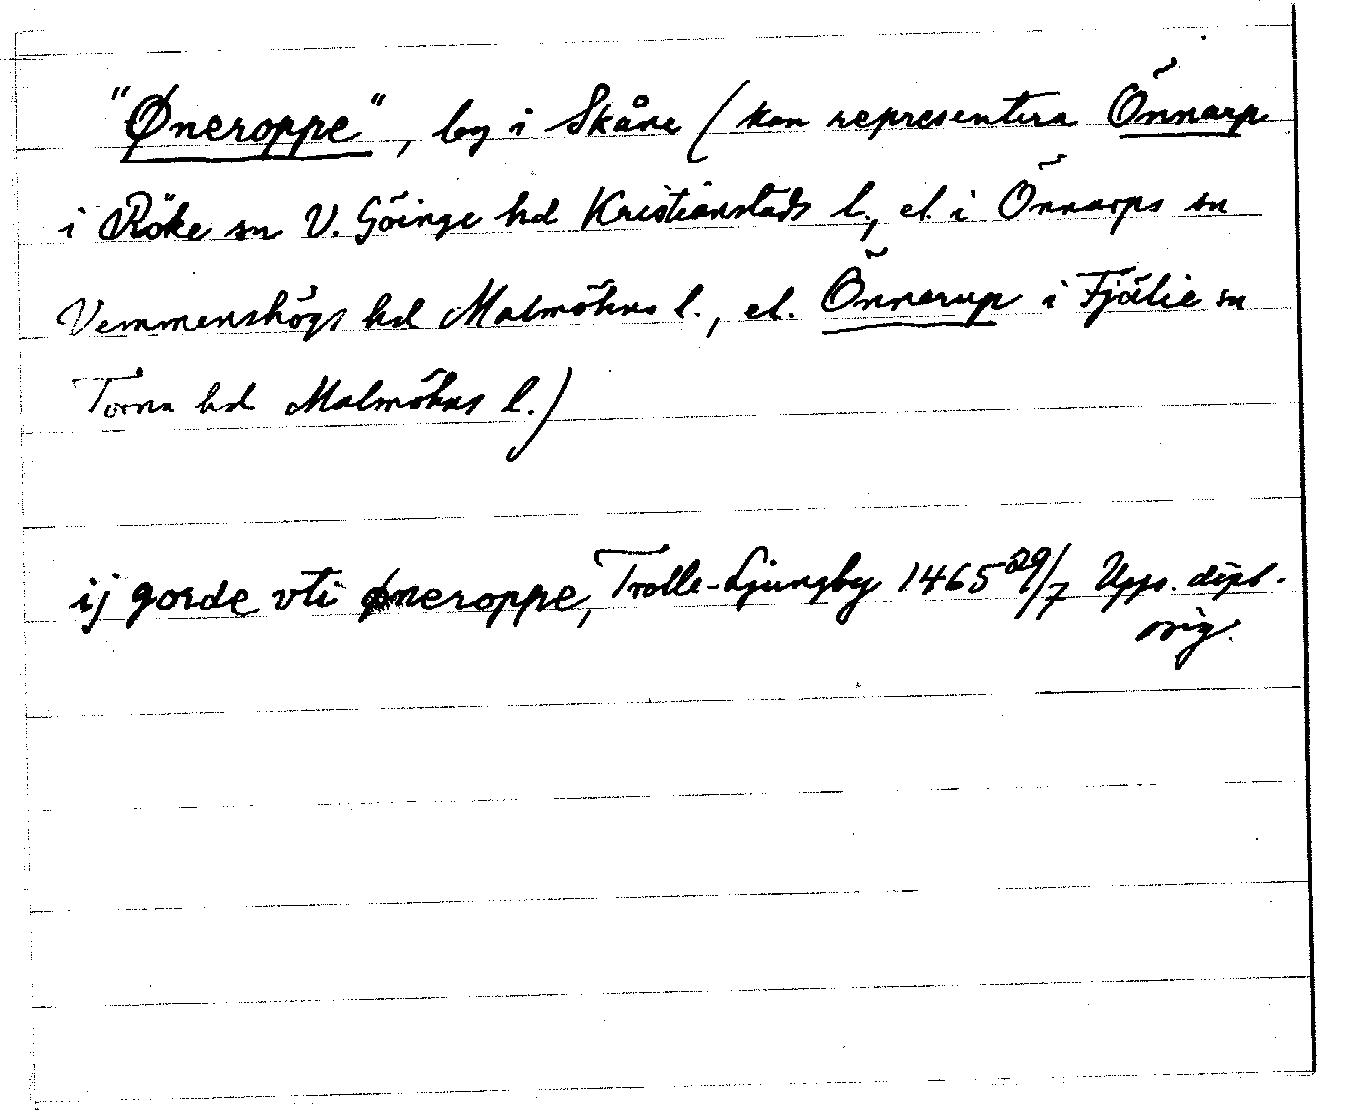 "Øneroppe", by i Skåne (kan representera Önnarp
i Röke sn V. Göinge hd Kristianstads l., el. i Önnarps sn
Vemmenshögs hd Malmöhus l., el. Önnerup i Fjälie sn
Torna hd Malmöhus l.)
ij gorde vti øneroppe, Trolle-Ljungby 1465 29/7 Upps. dipl.
orig.